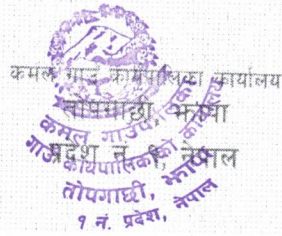 कमल गाउँ कार्यपालिका कार्यालय
तोपगाछी झापा
प्रदेश नं. १, नेपाल
कमल गाउँपालिका
गाउँ कार्यपालिकाको कार्यालय
तोपगाछी, झापा
१ नं. प्रदेश, नेपाल